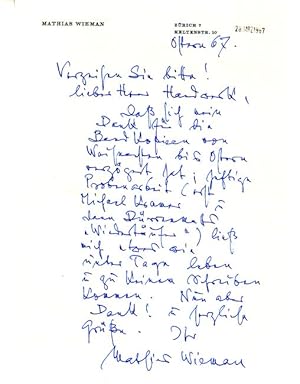 MATHIAS WIEMAN
ZÜRICH 7
KELTENSTR. 10
Ostern 67.
Verzeihen Sie bitte!
lieber Herr Handwerk,
daß sich mein
Dank für die
Band Kopieen von
Weihnachten bis Ostern
verzögert hat; heftige
Probenarbeit (erst
Michael Kramer u
dann Dürrenmatts
„Wiedertäufer“) ließ
mich
unter Tage leben
u zu keinem Schreiben
kommen. Nun aber
Dank! u herzliche
Grüße. Ihr
Mathias Wieman